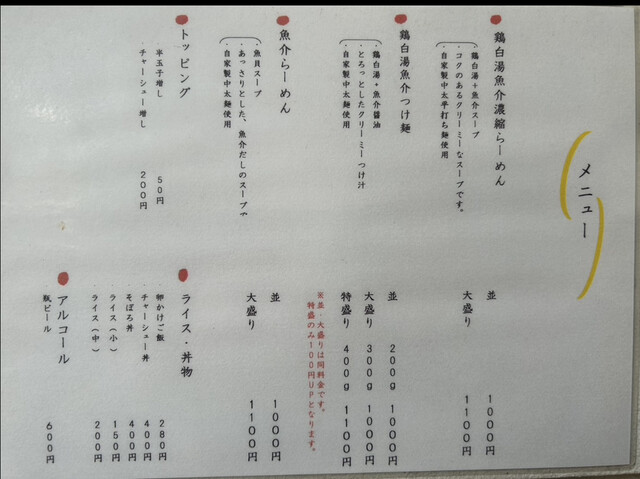 メニュー
鶏白湯魚介濃縮らーめん
鶏白湯＋魚介スープ
コクのあるクリーミーなスープです。
自家製中太平打ち麺使用
並 1000円
大盛り 1100円
鶏白湯魚介つけ麺
鶏白湯＋魚介醤油
とろっとしたクリーミーつけ汁
自家製中太麺使用
並 200g 1000円
大盛り 300g 1000円
特盛り 400g 1100円
※並・大盛りは同料金です。
特盛のみ100円UPとなります。
魚介らーめん
魚貝スープ
あっさりとした、魚介だしのスープで
自家製中太麺使用
並 1000円
大盛り 1100円
トッピング
半玉子増し 50円
チャーシュー増し 200円
ライス・丼物
卵かけご飯 280円
チャーシュー丼 400円
そぼろ丼 400円
ライス（小） 150円
ライス（中） 200円
アルコール
瓶ビール 600円